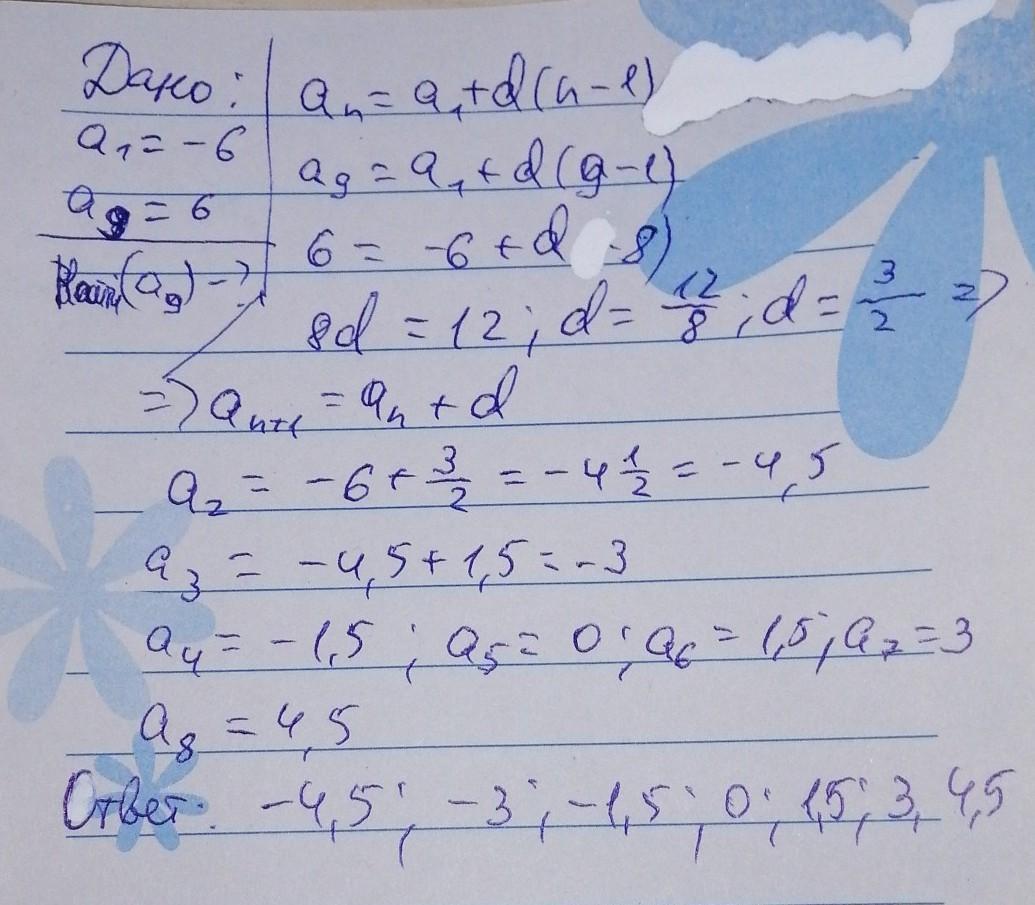 Дано:
a₁ = -6
a₉ = 6
(a₉) - ?
aₙ = a₁ + d(n-1)
a₉ = a₁ + d(9-1)
6 = -6 + d -8)
8d = 12; d = 12/8; d = 3/2 =>
=> aₙ₊₁ = aₙ + d
a₂ = -6 + 3/2 = -4 1/2 = -4,5
a₃ = -4,5 + 1,5 = -3
a₄ = -1,5; a₅ = 0; a₆ = 1,5; a₇ = 3
a₈ = 4,5
Ответ: -4,5; -3; -1,5; 0; 1,5; 3, 4,5